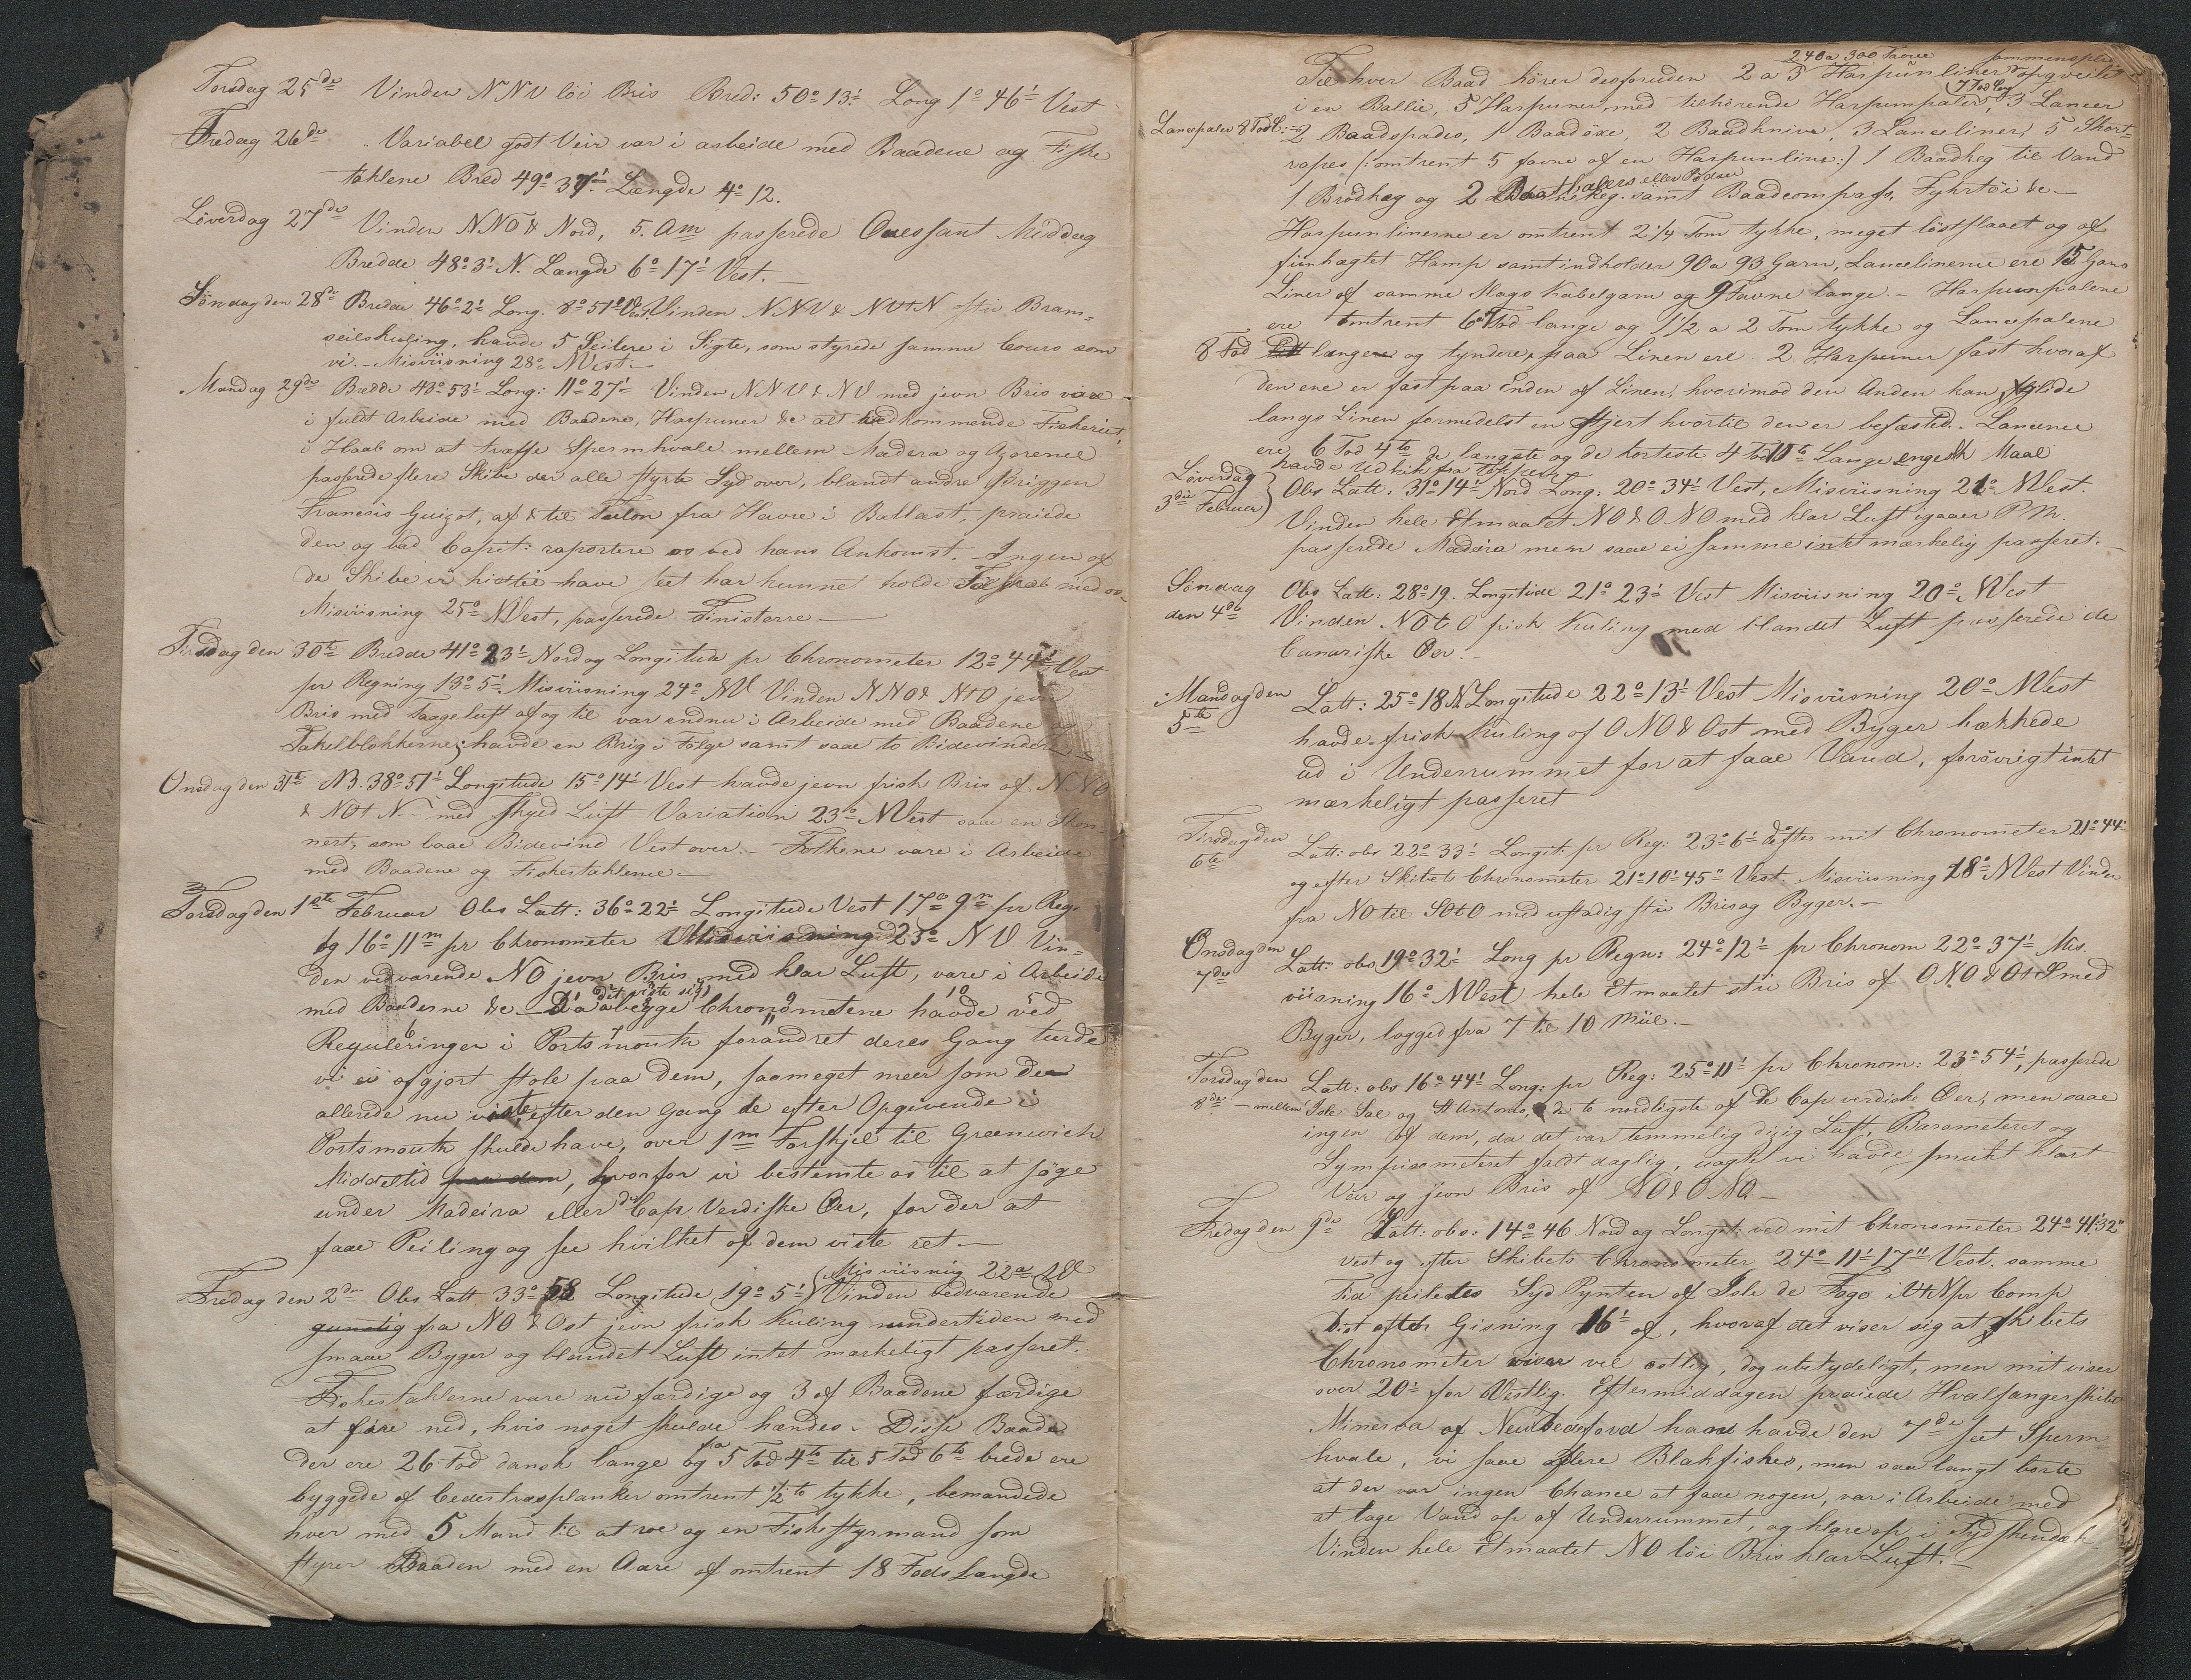 Torsdag 25de Vinden NNV löi Bris Bred: 50° 13' Long 1° 46' Vest
Fredag 26de Variabel godt Veir var i arbeide med Baadene og Fiske
taklene Bred 49° 37' Længde 4° 12.
Löverdag 27de Vinden NNO & Nord, 5. Am passerede Ouessant Middag
Bredde 48° 3' N. Længde 6° 17' Vest. —
Söndag den 28de Bredde 46° 2' Long. 8° 51' Vest. Vinden NNV & NVtN stiv Bram-
seilskuling, havde 5 Seilere i Sigte, som styrede samme Cours som
vi. — Misviisning 28° NVest —
Mandag 29de Bredde 43° 53' Long: 11° 27' Vinden NNV & NV med jevn Bris vare
i fuldt Arbeide med Baadene, Harpuner &c alt vedkommende Fiskeriet,
i Haab om at træffe Spermhvale mellem Madera og Azorene
passerede flere Skibe der alle styrte Sydover, blandt andre Briggen
Francois Guizot, af & til fra Havre i Ballast, praiede
den og bad Capit: raportere os ved hans Ankomst. — Ingen af
de Skibe vi hidtil have seet har kunnet holde med os.
Misviisning 25° NVest, passerede Finisterre —
Tirsdag den 30te Bredde 41° 23' Nord og Longitude pr Chronometer 12° 44' Vest
pr Regning 13° 5'. Misviisning 24° NV Vinden NNO & NtO jevn
Bris med Taageluft af og til var endnu i Arbeide med Baadene og
Takelblokkerne, havde en Brig i Fölge samt saae to Bidevindere
Onsdag den 31te NB. 38° 51' Longitude 15° 14' Vest havde jevn frisk Bris af NNO
& NOtN. — med skyed Luft Variation 23° NVest saae en Skon-
nert, som laae Bidevind Vestover. — Folkene vare i Arbeide
med Baadene og Fisketaklerne —
Torsdag den 1ste Februar Obs Latt: 36° 22' Longitude Vest 17° 9m pr Reg.
og 16° 11m pr Chronometer Misviisning 23° NV Vin-
den vedvarende NO jevn Bris med klar Luft, vare i Arbeide
med Baadene &c — Da det viste sig begge Chronometrene havde ved
Reguleringen i Portsmouth forandret deres Gang turde
vi ei afgjort stole paa dem, saameget meer som de
allerede nu viste, efter den Gang de efter Opgivende i
Portsmouth skulde have, over 1m Forskjel til Greenwich
Middeltid paa dem, hvorfor vi bestemte os til at söge
under Madeira eller de Cap Verdiske Öer, for der at
faae Peiling og see hvilket af dem viste ret —
Misviisning 22° NV
Fredag den 2den Obs Latt 33° 58 Longitude 19° 5' Vinden vedvarende
gunstig fra NO & Ost jevn frisk Kuling undertiden med
smaae Byger og blandet Luft intet mærkeligt passeret.
Fisketaklerne vare nu færdige og 3 af Baadene færdige
at fire ned, hvis noget skulde hændes. — Disse Baade
der ere 26 Fod dansk lange og fra 5 Fod 4to til 5 Fod 6to brede ere
byggede af Cedertræsplanker omtrent 1/2 to tykke, bemandede
hver med 5 Mand til at roe og en Fiskestyrmand som
styrer Baaden med en Aare af omtrent 18 Fods Længde
240 a 300 Favne
Til hver Baad hörer desforuden 2 a 3 Harpunliner opqveilet
i en Ballie, 5 Harpuner med tilhörende Harpunpæler, (7 Fod lang) 3 Lancer
Lancepæler 8 Fod l: — 2 Baadspader, 1 Baadöxe, 2 Baadknive, 3 Lanceliner, 5 Short-
ropes (: omtrent 5 favne af en Harpunline :) 1 Baadkeg til Vand
1 Brödkeg og 2 eller samt Baadcompass, Fyhrtöi &c —
Harpunlinerne er omtrent 2 1/4 Tom tykke, meget löstslaaet og af
fiinhægtet Hamp samt indholder 90 a 93 Garn, Lancelinerne ere 15 Garns
Liner af samme Slags Kabelgarn og 9 Favne lange. — Harpunpælene
ere omtrent 6 a 7 Fod lange og 1 1/2 a 2 Tom tykke og Lancepælene
8 Fod længere og tyndere, paa Linen ere 2 Harpuner fast hvoraf
den ene er fast paa Enden af Linen, hvorimod den Anden kan glide
langs Linen formedelst en Stjert hvortil den er befæsted. — Lancerne
ere 6 Fod 4to de længste og de korteste 4 Fod 10to Lange engelsk Maal
havde Udkik fra Toppen
Löverdag Obs Latt. 31° 14' Nord Long: 20° 34' Vest, Misviisning 21° NVest.
3die Februar Vinden hele Etmaalet NO & ONO med klar Luft igaaer P.M.
passerede Madera men saae ei samme intet mærkelig passeret. —
Söndag Obs Latt: 28° 19. Longitude 21° 23' Vest Misviisning 20° NVest
den 4de Vinden NOtO frisk Kuling med blandet Luft passerede de
Canariske Öer. —
Mandag den Latt: 25° 18 N Longitude 22° 13' Vest Misviisning 20° NVest
5te havde frisk Kuling af ONO & Ost med Byger hækkede
ud i Underrummet for at faae Vand, forövrigt intet
mærkeligt passeret
Tirsdag den Latt: obs 22° 33' Longit: pr Reg: 23° 6' do efter mit Chronometer 21° 44'
6te og efter Skibets Chronometer 21° 10' 45" Vest. Misviisning 18° NVest Vinden
fra NO til SOtO med ustadig stiv Bris og Byger. —
Onsdag den Latt: obs 19° 32' Long pr Regn: 24° 12' pr Chronom 22° 37' Mis.
7de viisning 16° NVest hele Etmaalet stiv Bris af ONO & OtS med
Byger, logged fra 7 til 10 Miil. —
Torsdag den Latt: obs 16° 44' Long: pr Reg: 25° 11' pr Chronom: 23° 54', passerede
8de — mellem Isle Sal og St Antonio, de to nordligste af De Cap verdiske Öer, men saae
ingen af dem, da det var temmelig dizig Luft, Barometeret og
Sympisometeret faldt daglig, uagtet vi havde smukt klart
Veir og jevn Bris af NO & ONO —
Fredag den 9de Latt: obs: 14° 46 Nord og Longit: ved mit Chronometer 24° 41' 32"
Vest og efter Skibets Chronometer 24° 11' 17" Vest. samme
Tid peiledes Syd Pynten af Isle de Fogo i VtN pr Comp
Dist efter Gisning 16' af, hvoraf det viser sig at Skibets
Chronometer viser vel ostlig, dog ubetydeligt, men mit viser
over 20' for Vestlig. Eftermiddagen praiede Hvalfangerskibet
Minerva af Newbedford han havde den 7de seet Sperm-
hvale, vi saae flere Blakfiskes, men saa langt borte
at der var ingen Chance at faae nogen, var i Arbeide med
at tage Vand op af Underrummet, og klare op i
Vinden hele Etmaalet NO löi Bris klar Luft. —